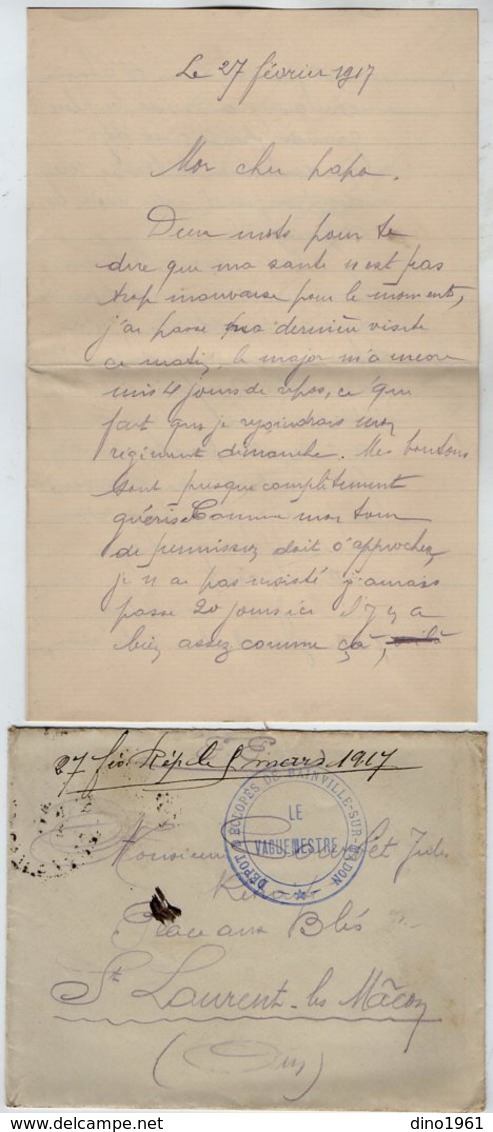 Le 27 février 1917
Mon cher papa.
Deux mots pour te
dire que ma santé n'est pas
trop mauvaise pour le moment,
j'ai passé ma dernière visite
ce matin, le major m'a encore
mis 4 jours de repos, ce qui
fait que je rejoindrais mon
régiment dimanche. Mes boutons
sont presque complètement
guéris. Comme mon tour
de permission doit s'approcher,
je n'ai pas insisté j'aurais
passé 20 jours ici il y en a
bien assez comme ça, voilà
27 fév Rép le 8 mars 1917
DÉPOT D'ÉCLOPÉS DE BAINVILLE-SUR-MADON
LE
VAGUEMESTRE
Monsieur Jules
Place aux Blés
St Laurent-les Mâcon
(Ain)
dino1961